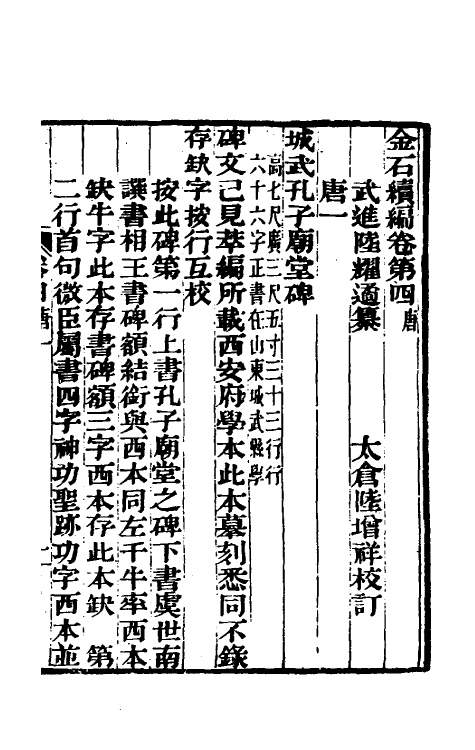 金石續編卷第四唐
武進陸耀遹纂　太倉陸增祥校訂
唐一
城武孔子廟堂碑
高七尺廣三尺五寸三十三行行
六十六字正書在山東城武縣學
碑文已見萃編所載西安府學本此本摹刻悉同不錄
存缺字按行互校
按此碑第一行上書孔子廟堂之碑下書虞世南
譔書相王書碑額結銜與西本同左千牛率西本
缺牛字此本存書碑額三字西本存此本缺　第
二行首句微臣屬書四字神功聖跡功字西本並